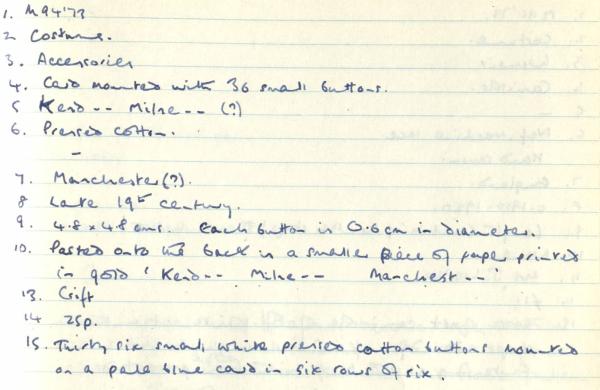 1. M94'73
2 Costume.
3. Accessories
4. Card mounted with 36 small buttons.
5 Kend-- Milne-- (?)
6. Pressed cotton.
-
7. Manchester(?).
8 Late 19th century.
9. 4.8 x 4.8 cms. Each button is 0.6 cm in diameter.
10. Pasted onto the back is a smaller piece of paper printed
in gold ' Kend-- Milne-- Manchest--'
13. Gift
14 25p.
15. Thirty six small white pressed cotton buttons mounted
on a pale blue card in six rows of six.